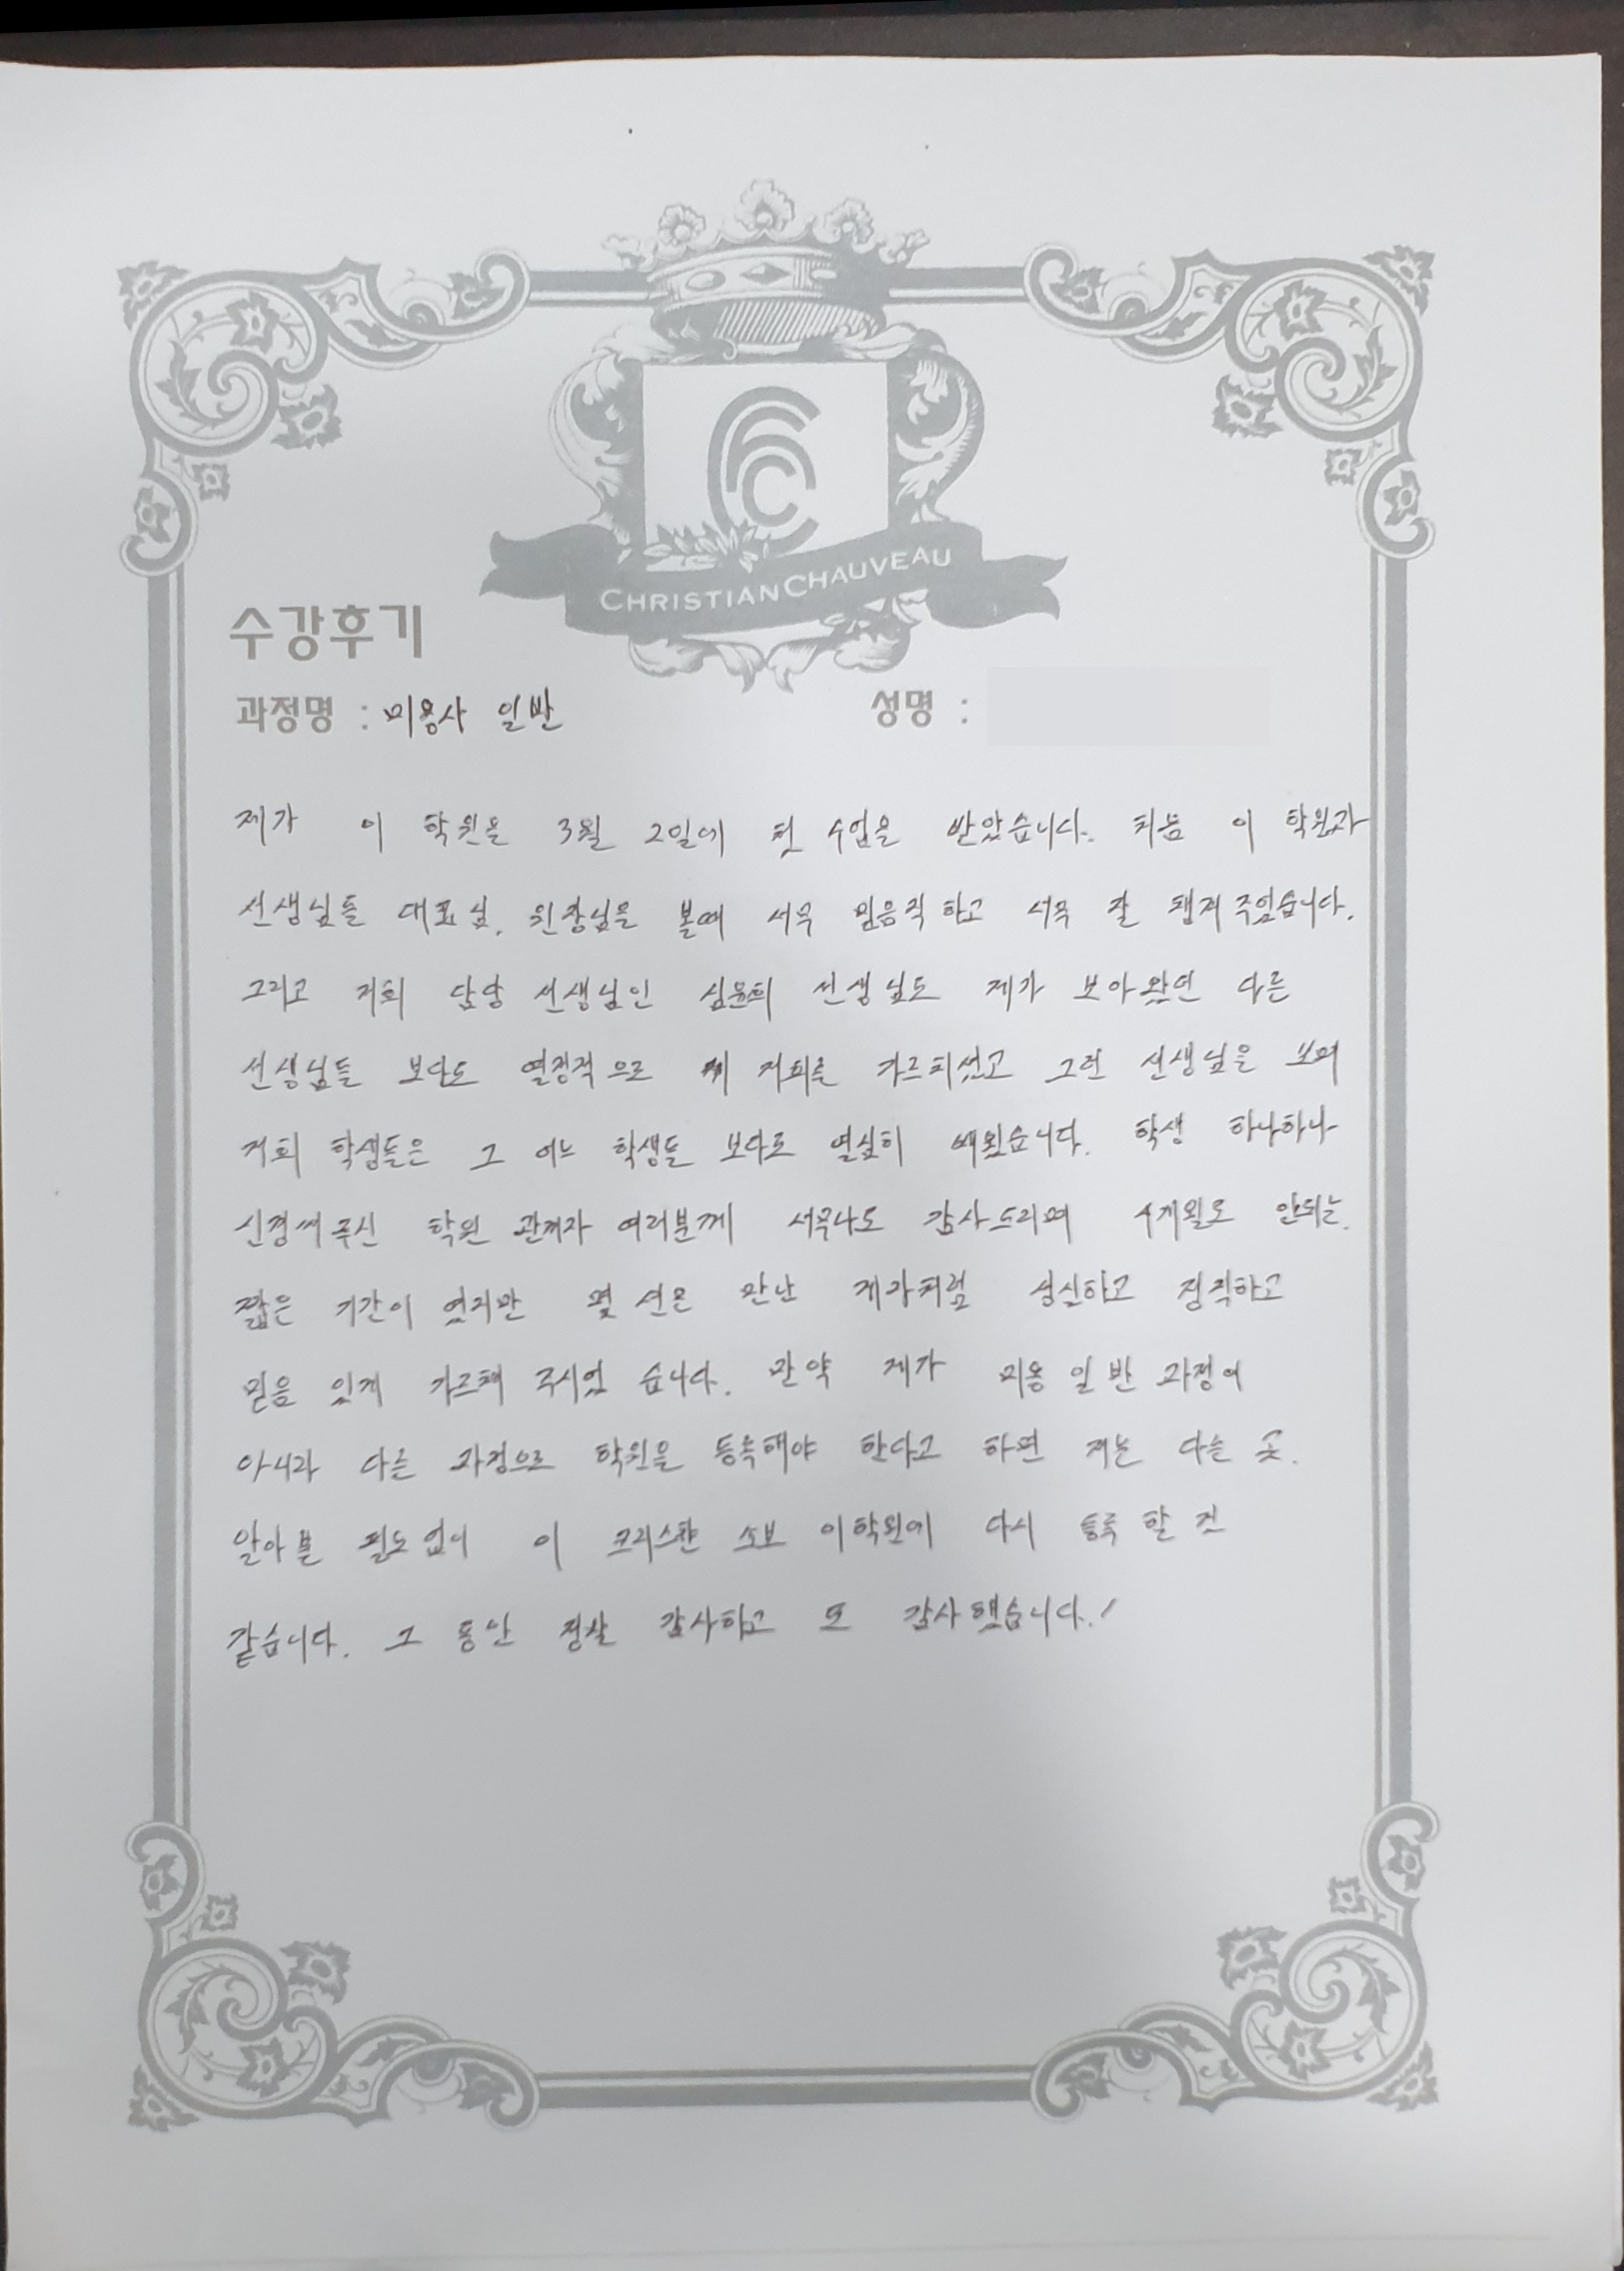 CHRISTIAN CHAUVEAU
수강후기
과정명 : 미용사 일반 성명 :
제가 이 학원을 3월 2일에 첫 수업을 받았습니다. 처음 이 학원과
선생님들 대표님, 원장님을 볼때 너무 믿음직하고 너무 잘 챙겨주었습니다.
그리고 저희 담당 선생님인 심윤희 선생님도 제가 보아왔던 다른
선생님들 보다도 열정적으로 저희를 가르치셨고 그런 선생님을 보며
저희 학생들은 그 어느 학생들 보다도 열심히 배웠습니다. 학생 하나하나
신경써주신 학원 관계자 여러분께 너무나도 감사드리며 4개월도 안되는
짧은 기간이 였지만 몇 년은 만난 제자처럼 성실하고 정직하고
믿음 있게 가르쳐 주시었습니다. 만약 제가 미용 일반 과정이
아니라 다른 과정으로 학원을 등록해야 한다고 하면 저는 다른 곳.
알아볼 필요없이 이 크리스챤 쇼보 이학원에 다시 등록 할 것
같습니다. 그 동안 정말 감사하고 또 감사했습니다.!